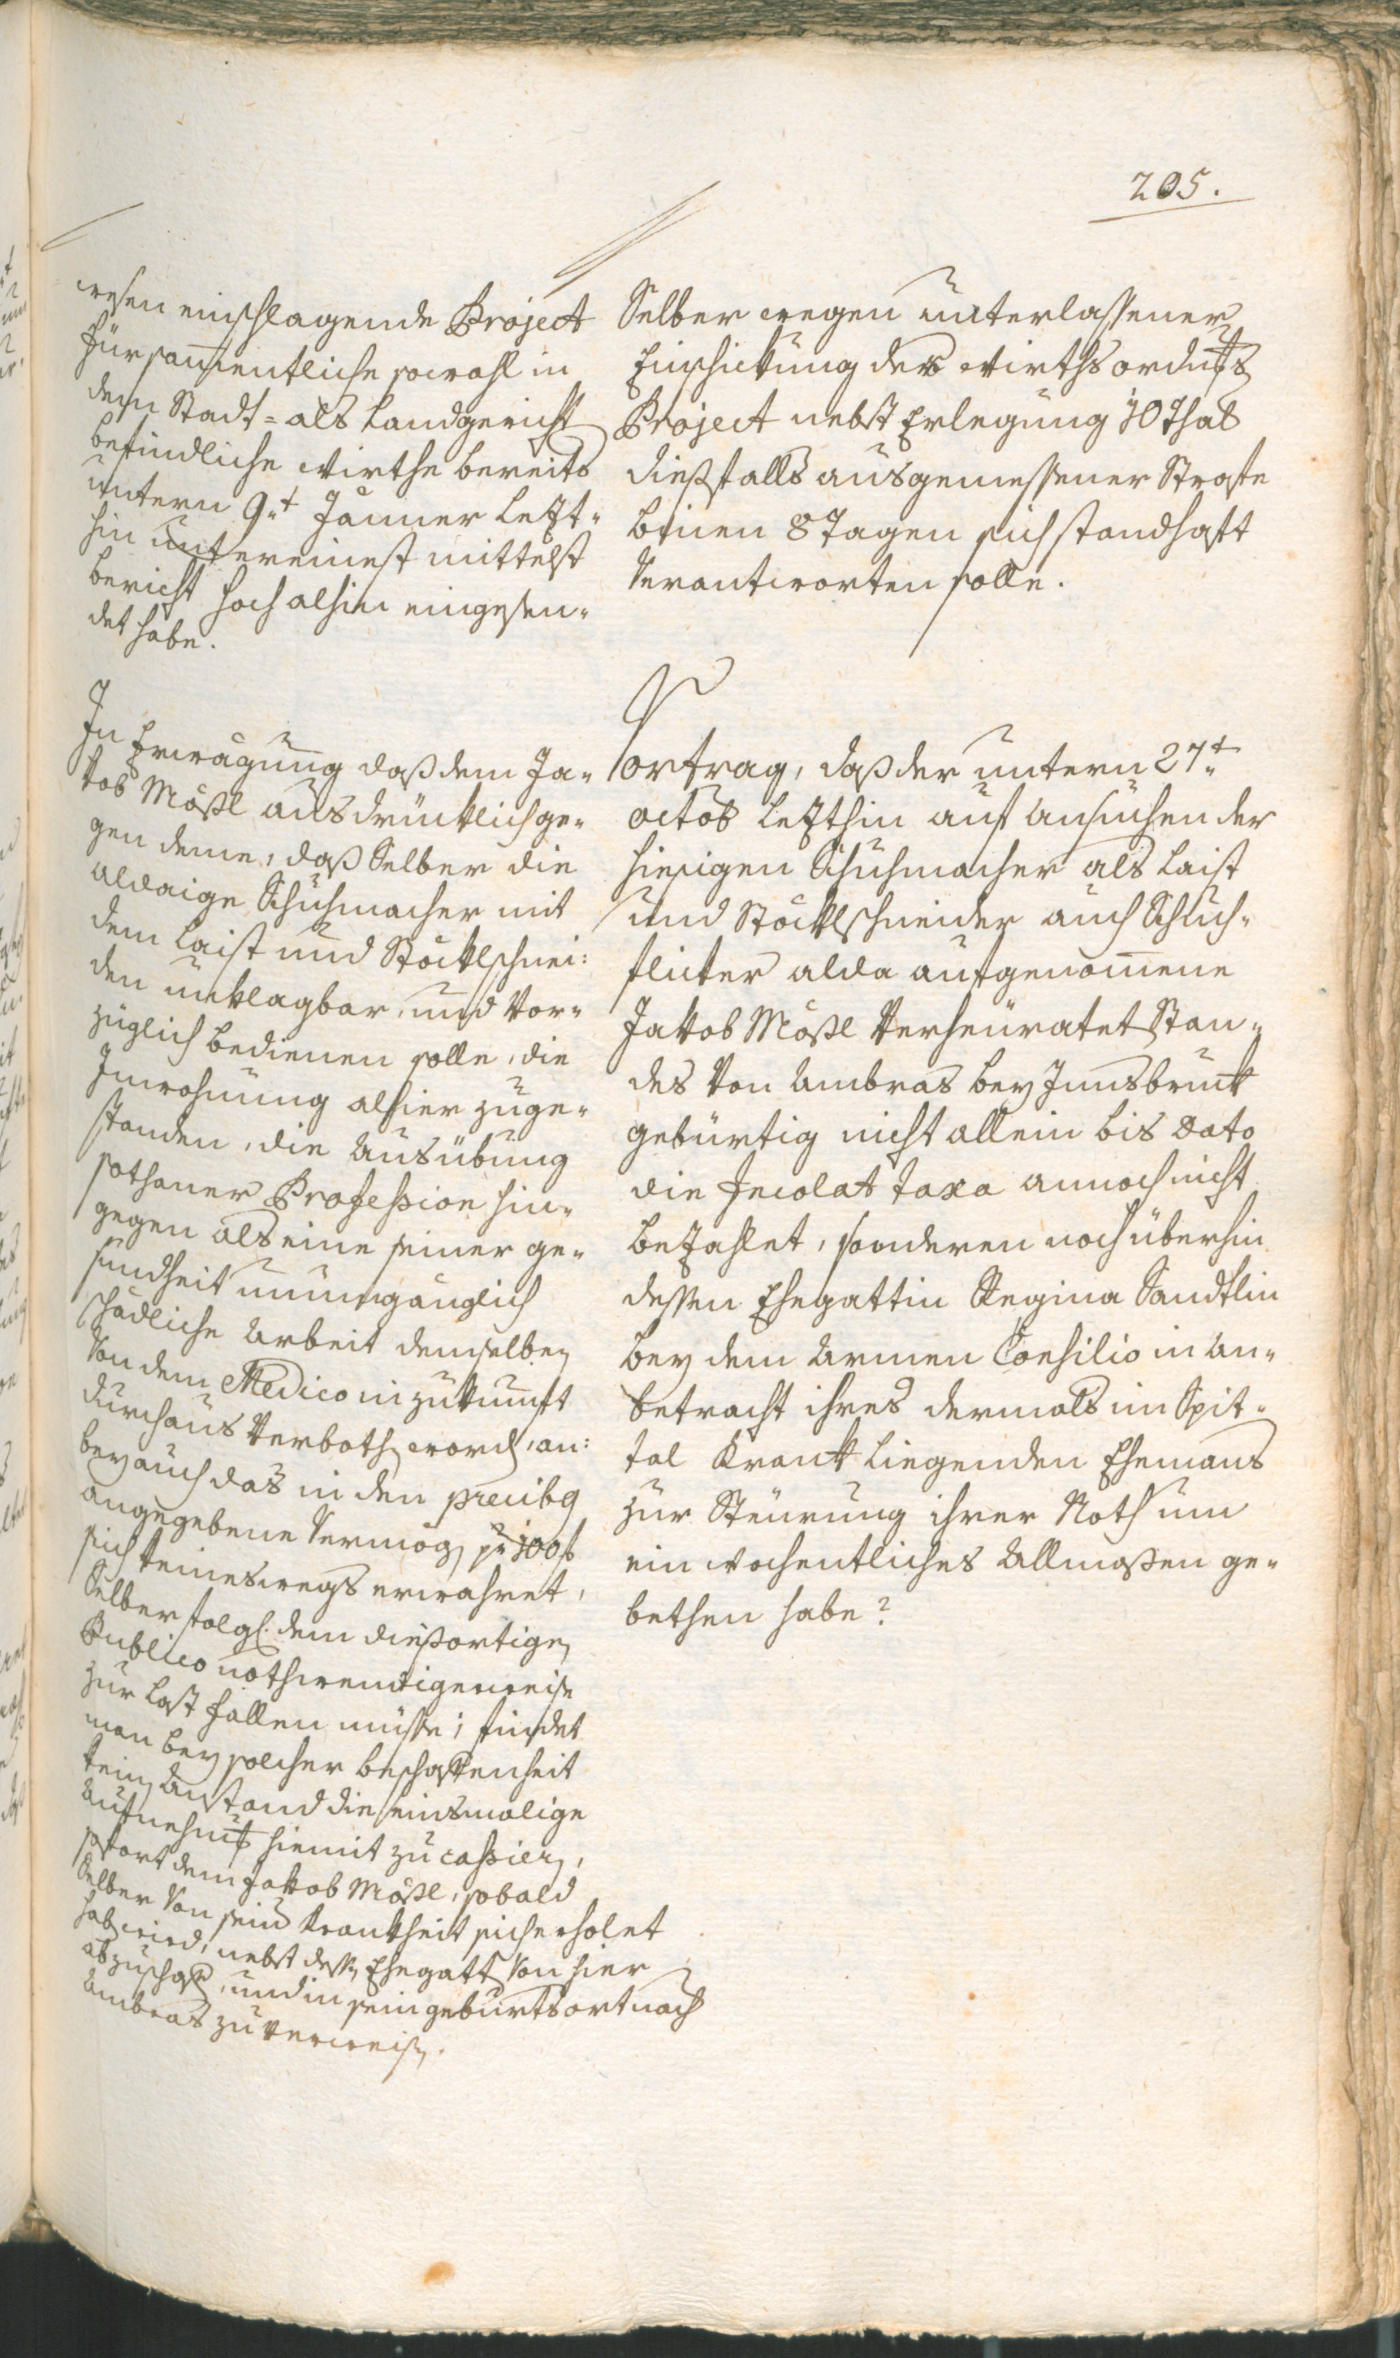 205.
wesen einschlagende Project
für sam̅entliche sowohl in
dem Stadt= als Landgericht
befindliche Wirthe bereits
untern 9.t Jänner Letzt-
hin untereinest mittelst
bericht hoch alhin eingesen-
det habe.
In Erwägung daß dem Ja-
kob Mößl ausdrücklich ge-
gen deme, daß Selber die
aldaige Schuhmacher mit
dem Laist und Stöcklschnei:
den unklagbar, und Vor-
züglich bedienen solle, die
Inwohnung alhier zuge-
standen, die Ausübung
sothaner Profession hin-
gegen als eine seiner ge-
sundheit unumgänglich
schädliche Arbeit demselben
Von dem Medico in zukunft
durchaus Verbothen worden, an:
bey auch das in den precibq
angegebene Vermögen pr 100 f
sich keineswegs erwahret,
Selber folgl. dem dießortigen
Publico nothwendigerweise
zur Last fallen müsse; findet
man bey solcher beschaffenheit
keinen Anstand die einsmalige
Aufnehmung hiemit zu cassieren,
sofort dem Jakob Mößl, sobald
Selber Von seiner Krankheit sich erholet
haben wird, nebst dessen Ehegattin Von hier
abzuschaffen, und in sein geburtsort nach
Ambras zu Verweisen.
Selber wegen unterlassener
Einschickung des Wirthsordnungs
Project nebst Erlegung 10 Thal
dießfalls ausgemessener Straffe
binen 8 Tagen sich standhafft
Verantworten solle.
Vortrag, daß der untern 27.t
octob Letzthin auf Ansuchen der
hiesigen Schuhmacher als Laist
und Stöcklschneider auch Schuh-
flicker alda aufgenom̅ene
Jakob Mößl Verheuratet Stan-
des Von Ambras bey Innsbruck
gebürtig nicht allein bis Dato
die Incolat taxa annoch nicht
bezahlet, sonderen noch überhin
dessen Ehegattin Regina Sandtlin
bey dem Armen Consilio in An-
betracht ihres dermals im Spit-
tal Krank liegenden Ehemans
zur Steurung ihrer Noth um
ein wochentliches Allmoßen ge-
bethen habe?